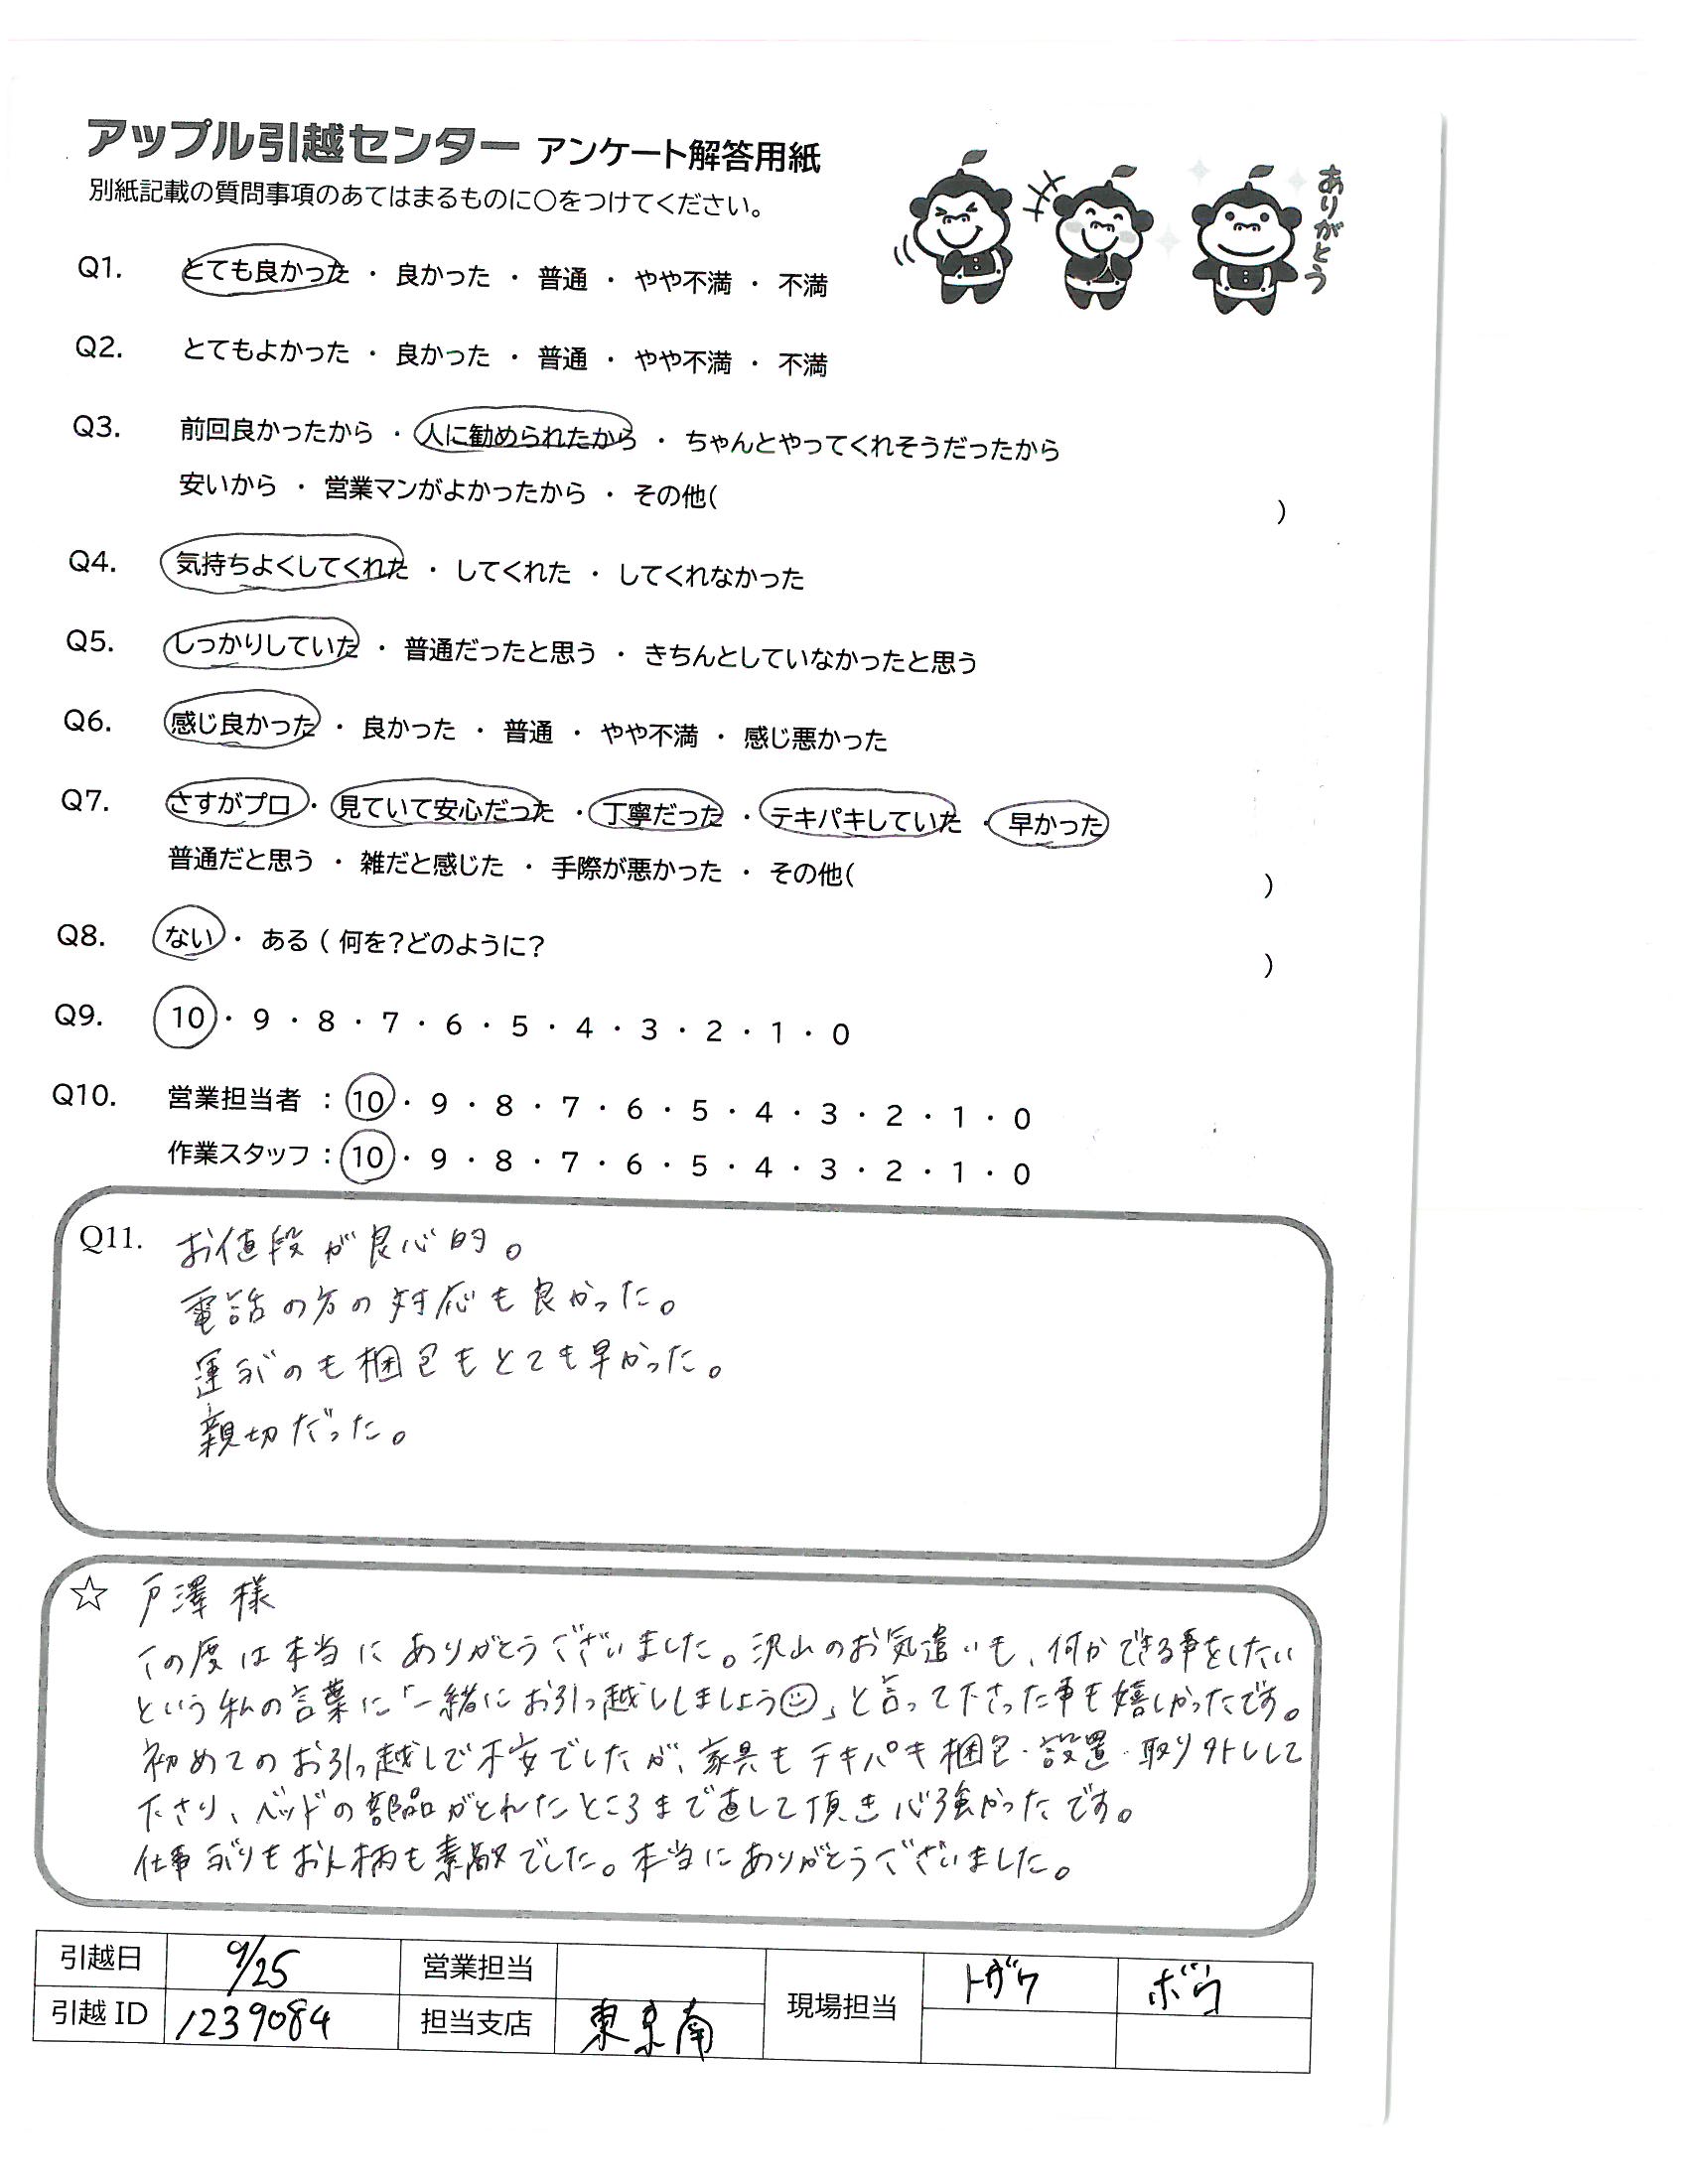 アップル引越センター アンケート解答用紙
別紙記載の質問事項のあてはまるものに○をつけてください。
ありがとう
Q1. とても良かった ・ 良かった ・ 普通 ・ やや不満 ・ 不満
Q2. とてもよかった ・ 良かった ・ 普通 ・ やや不満 ・ 不満
Q3. 前回良かったから ・ 人に勧められたから ・ ちゃんとやってくれそうだったから
安いから ・ 営業マンがよかったから ・ その他( )
Q4. 気持ちよくしてくれた ・ してくれた ・ してくれなかった
Q5. しっかりしていた ・ 普通だったと思う ・ きちんとしていなかったと思う
Q6. 感じ良かった ・ 良かった ・ 普通 ・ やや不満 ・ 感じ悪かった
Q7. さすがプロ ・ 見ていて安心だった ・ 丁寧だった ・ テキパキしていた ・ 早かった
普通だと思う ・ 雑だと感じた ・ 手際が悪かった ・ その他( )
Q8. ない ・ ある ( 何を?どのように? )
Q9. 10 ・ 9 ・ 8 ・ 7 ・ 6 ・ 5 ・ 4 ・ 3 ・ 2 ・ 1 ・ 0
Q10. 営業担当者 : 10 ・ 9 ・ 8 ・ 7 ・ 6 ・ 5 ・ 4 ・ 3 ・ 2 ・ 1 ・ 0
作業スタッフ : 10 ・ 9 ・ 8 ・ 7 ・ 6 ・ 5 ・ 4 ・ 3 ・ 2 ・ 1 ・ 0
Q11. お値段が良心的。
電話の方の対応も良かった。
運ぶのも梱包もとても早かった。
親切だった。
☆ 戸澤様
この度は本当にありがとうございました。沢山のお気遣いも、何かできる事をしたい
という私の言葉に「一緒にお引っ越ししましょう☺」と言って下さった事も嬉しかったです。
初めてのお引っ越しで不安でしたが、家具もテキパキ梱包・設置・取り外しして
下さり、ベッドの部品がとれたところまで直して頂き心強かったです。
仕事ぶりもお人柄も素敵でした。本当にありがとうございました。
引越日 9/25 営業担当 現場担当 トザワ ボウ
引越 ID 1239084 担当支店 東京南